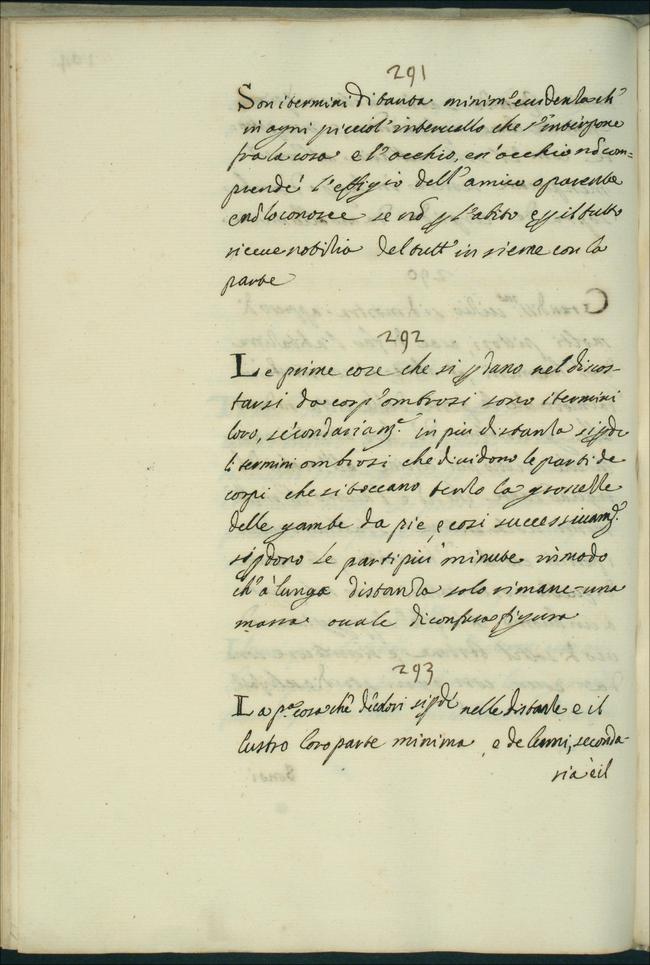 291
Son i termini di tanta minim' euidentia ch'
in ogni picciol' interuallo che s' interpone
fra la cosa e l' occhio, es' occhio nō com=
prende l' effigie dell' amico o parente
e nō lo conosce se nō p l' abito e p il tutto
riceue notitia del tutt' insieme con la
parte
292
Le prime cose che si pdano nel discos-
tarsi da corpi ombrosi sono i termini
loro, secondariam.e in piu distantia si pde
li termini ombrosi che diuidono le parti de
corpi che si toccano tento la grosselle
delle gambe da pie, e cosi successiuam.e
si pdono le parti piu minute in modo
ch' a lunga distantia solo rimane una
massa ouale di confusa figura
293
La p.a cosa che de colori si pde nelle distantie e il
lustro loro parte minima, e de lumi, seconda-
ria è il